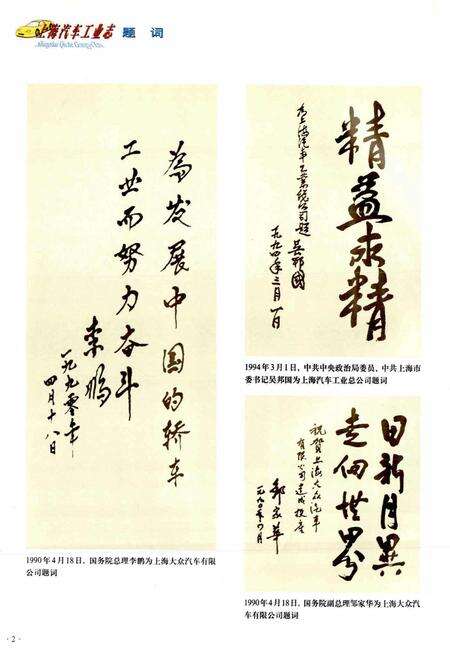 上海汽车工业志
Shanghai Qiche Gongye Zhi
题 词
为发展中国的轿车
工业而努力奋斗
李鹏
一九九零年
四月十八日
1990年4月18日，国务院总理李鹏为上海大众汽车有限
公司题词
精益求精
为上海汽车工业总公司题
吴邦国
一九九四年三月一日
1994年3月1日，中共中央政治局委员、中共上海市
委书记吴邦国为上海汽车工业总公司题词
日新月異
走向世界
祝贺上海大众汽车
有限公司建成投产
邹家华
一九九〇年四月
1990年4月18日，国务院副总理邹家华为上海大众汽
车有限公司题词
· 2 ·